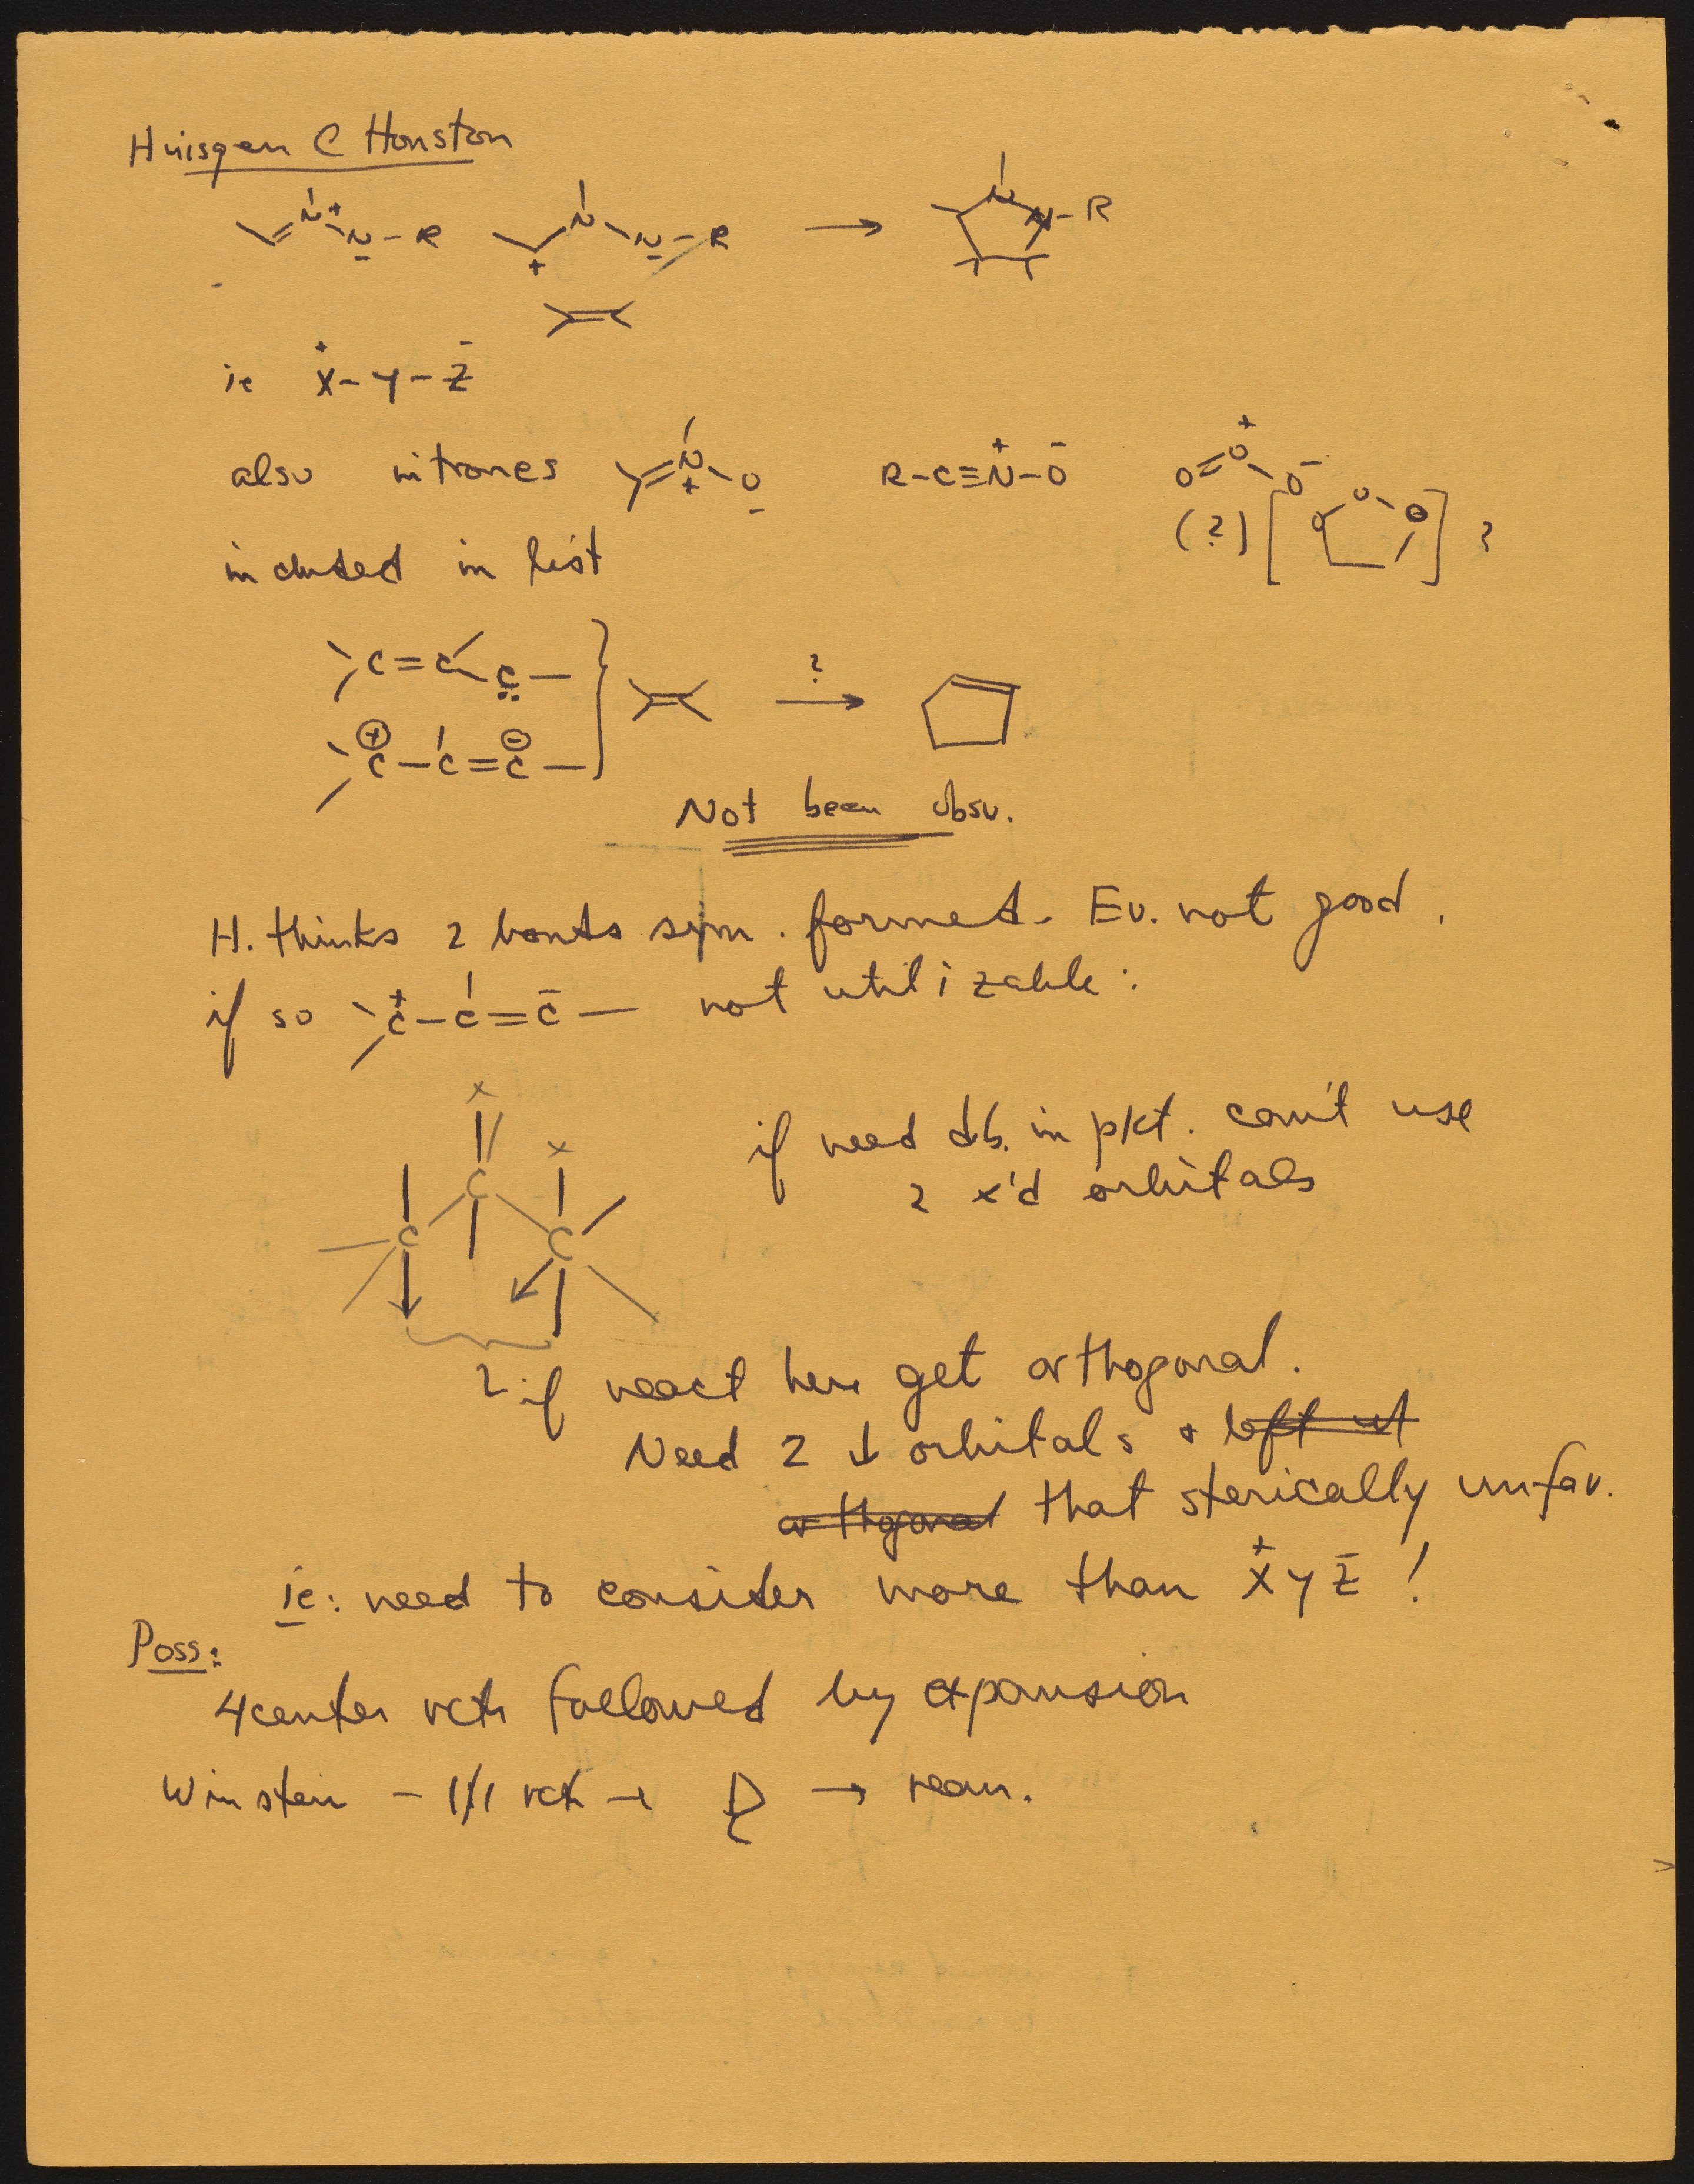 Huisgen @ Houston
N+ N - R N N - R → N N - R
+
ie X+ - Y - Z-
also nitrones N+ O- R-C≡N+-O- O=O+ O-
(?) [ O O O ] ?
included in list
C=C C: }
⊕C-C=C⊖ ?→
Not been obsv.
H. thinks 2 bonds sym. formed. Ev. not good.
if so C+-C=C- not utilizable:
x
x
C
C C
if need d.b. in pkt. can't use
2 x'd orbitals
if react here get orthogonal.
Need 2 ↓ orbitals + left ut
orthogonal that sterically unfav.
ie: need to consider more than X+ Y Z- !
Poss:
4center rctn followed by expansion
Winstein - 1/1 rctn → → rearr.